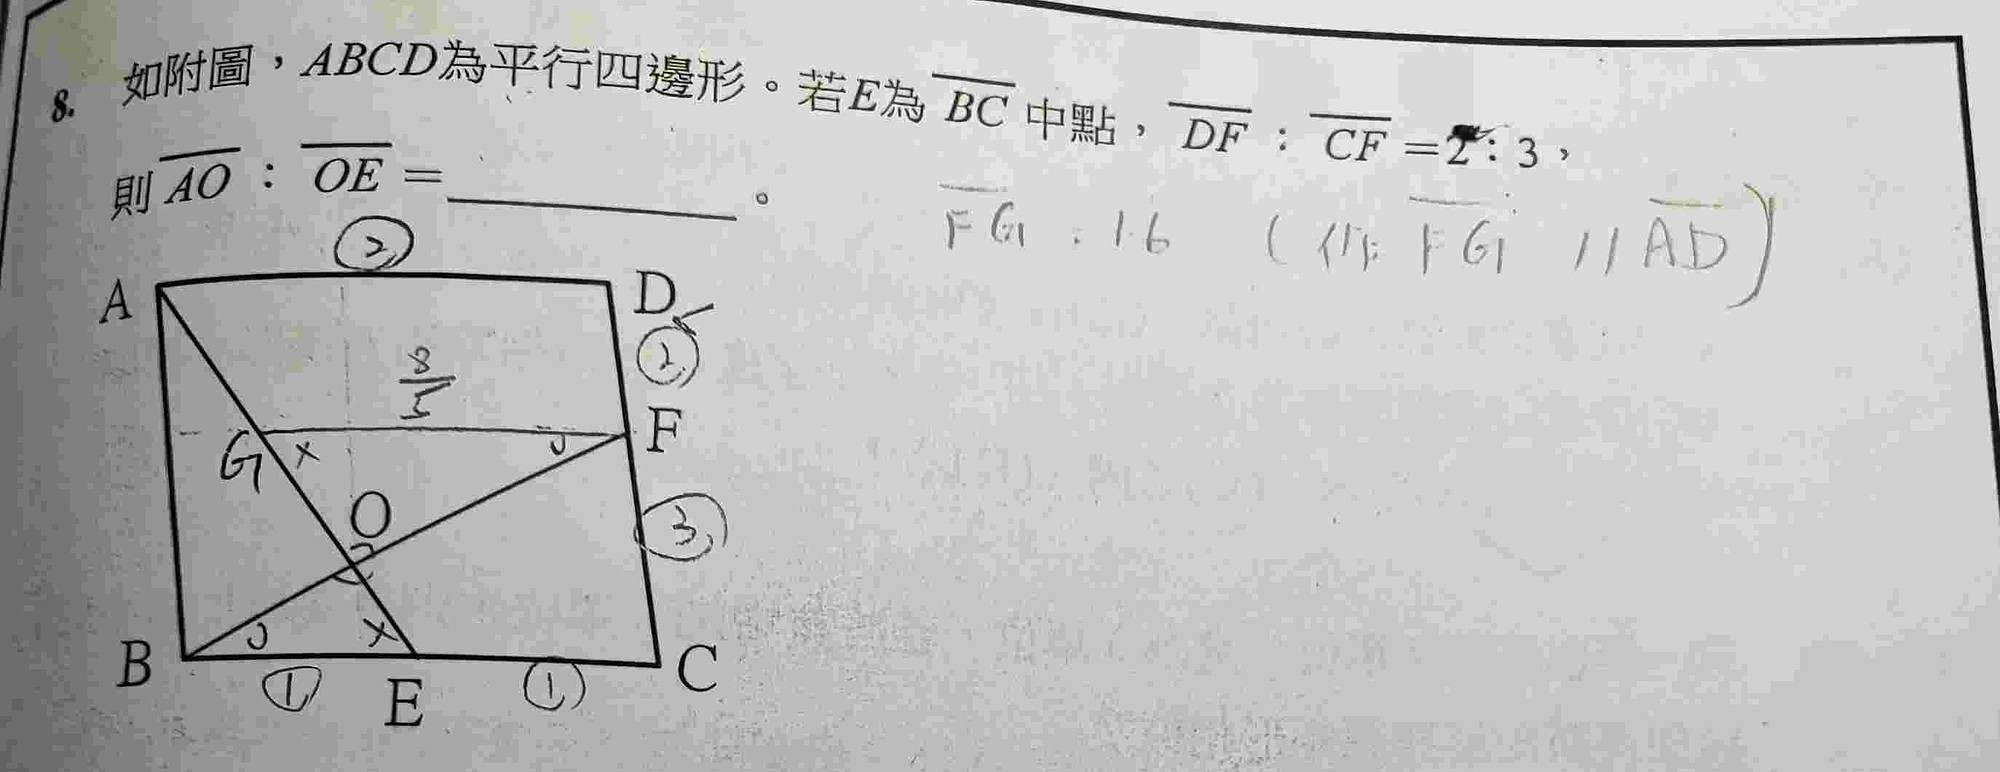 8. 如附圖，ABCD為平行四邊形。若E為BC中點，DF：CF=2：3，
則AO：OE=______。
FG = 1.6 (作FG // AD)
2
A
D
2
8/5
F
G
×
O
3
B
×
C
1
E
1